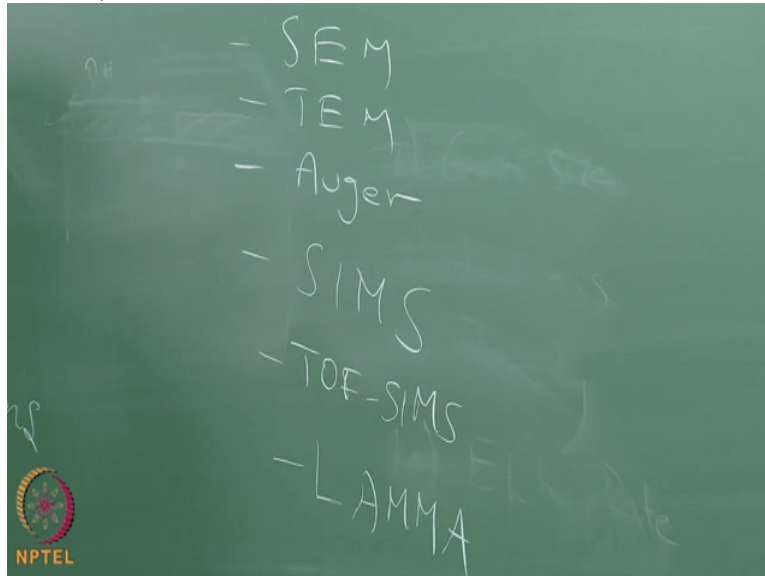 - SEM
- TEM
- Auger
- SIMS
- TOF-SIMS
- LAMMA
NPTEL